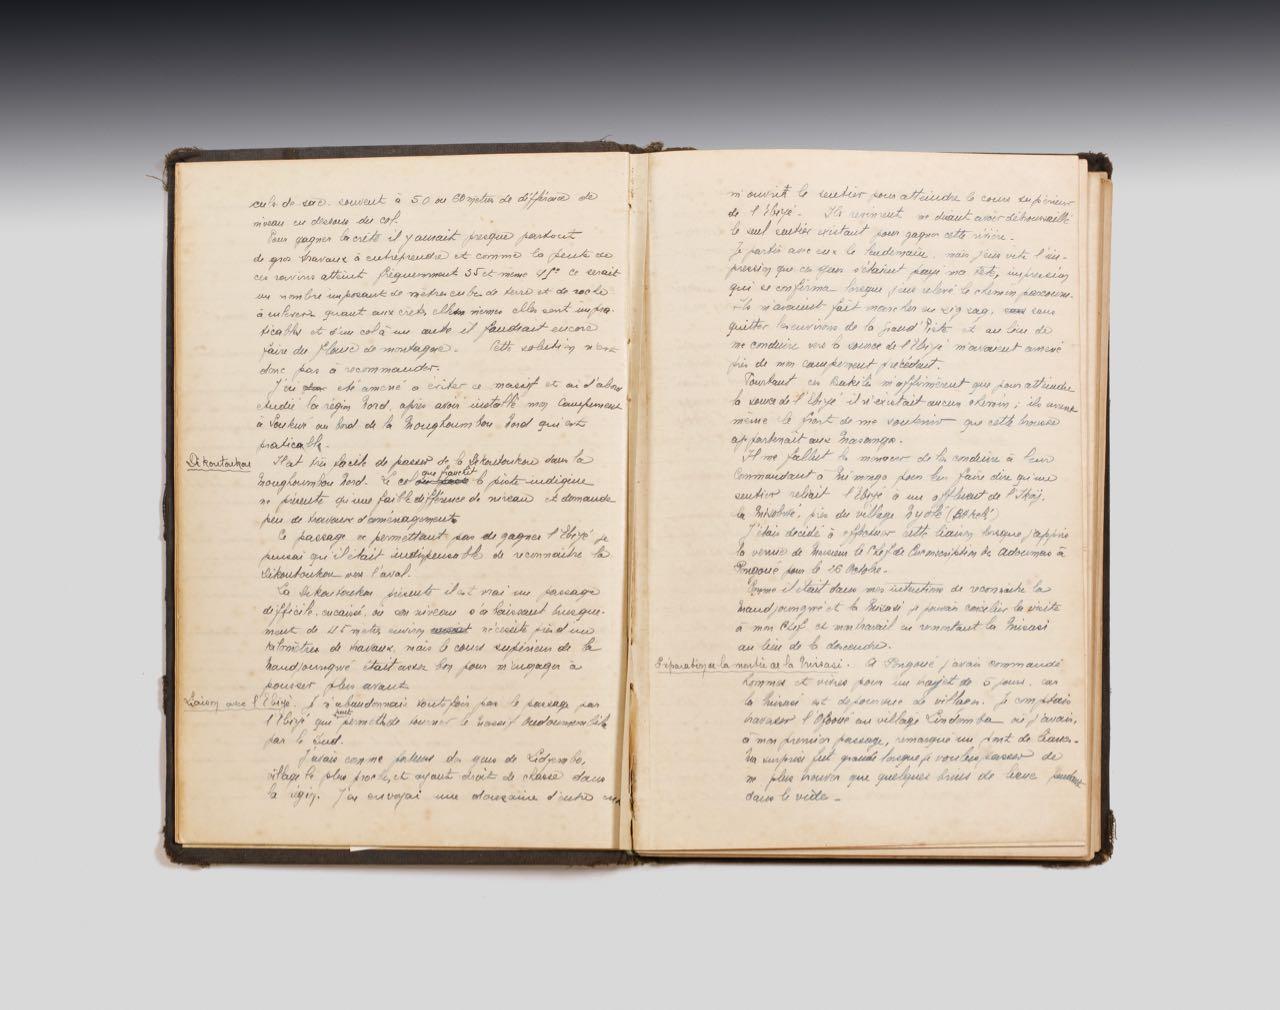 culs de sac souvent à 50 ou 60 mètres de différence de
niveau en dessous du col.
Pour gagner la crête il y aurait presque partout
de gros travaux à entreprendre et comme la pente de
ces ravins atteint fréquemment 35 et meme 45° ce serait
un nombre imposant de mètres cubes de terre et de roche
à enlever quant aux crêtes elles mêmes elles sont impra-
ticables et d'un col à un autre il faudrait encore
faire du flanc de montagne. Cette solution n'est
donc pas à recommander.
J'ai été amené à éviter ce massif et ai d'abord
étudié la région Nord, après avoir installé mon campement
à au bord de la Moughoumbou Nord qui est
praticable.
Dikoutoukou
Il est très facile de passer de la Dikoutoukou dans la
Moughoumbou Nord. Le col que franchit la piste indigène
ne présente qu'une faible différence de niveau et demande
peu de travaux d'aménagements
Ce passage ne permettant pas de gagner l'Ebiyé je
pensai qu'il était indispensable de reconnaître la
Dikoutoukou vers l'aval.
La Dikoutoukou présente il est vrai un passage
difficile, encaissé, où son niveau s'abaissant brusque-
ment de 45 metres environ nécessite près d'un
kilomètres de travaux, mais le cours supérieur de la
Mandjoungwé était assez bon pour m'engager à
pousser plus avant
Liaison avec l'Ebiyé. Je n'abandonnais toutefois pas le passage par
l'Ebiyé qui peut permettre de tourner le massif
par le Sud.
J'avais comme porteurs des gens de Lidjembo,
village le plus proche, et ayant droit de chasse dans
la région. J'en envoyai une douzaine d'entre eux
m'ouvrir le sentier pour atteindre le cours supérieur
de l'Ebiyé. Ils revinrent me disant avoir débroussaillé
le seul sentier existant pour gagner cette rivière.
Je partis avec eux le lendemain, mais j'eus vite l'im-
pression que ces gens s'étaient payé ma tête, impression
qui se confirma lorsque j'eus relevé le chemin parcouru.
Ils m'avaient fait marcher en zig zag, sans
quitter les environs de la grand'Piste et au lieu de
me conduire vers la source de l'Ebiyé m'avaient amené
près de mon campement précédent.
Pourtant ces Bakélés m'affirmèrent que pour atteindre
la source de l'Ebiyé il n'existait aucun chemin ; ils
même le front de me soutenir que cette brousse
appartenait aux Masango.
Il me fallut les menacer de les conduire à leur
Commandant à Mimongo pour leur faire dire qu'un
sentier reliait l'Ebiyé à un affluent de l'Ikoÿ,
la près du village
J'étais décidé à effectuer cette liaison lorsque j'appris
la venue de Monsieur le Chef de Circonscription des Adoumas à
Pongoué pour le 26 Octobre.
Comme il était dans mes instructions de reconnaître la
Mandjoungwé et la Missasi je pouvais concilier la visite
à mon Chef et mon travail en remontant la Missasi
au lieu de la descendre.
Préparation de la montée de la Missasi. A Pongoué j'avais commandé
hommes et vivres pour un trajet de 5 jours, car
la Missasi est dépourvue de villages. Je comptais
traverser l'Ofooué au village Lindomba où j'avais,
à mon premier passage, remarqué un pont de lianes.
Ma surprise fut grande lorsque je voulus passer de
ne plus trouver que quelques brins de liane pendant
dans le vide.